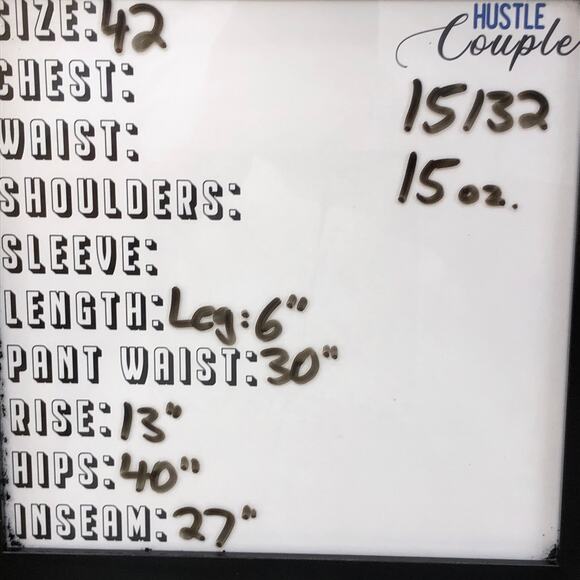 SIZE: 42
HUSTLE
Couple
CHEST:
15132
WAIST:
15 oz.
SHOULDERS:
SLEEVE:
LENGTH: Leg: 6"
PANT WAIST: 30"
RISE: 13"
HIPS: 40"
INSEAM: 27"